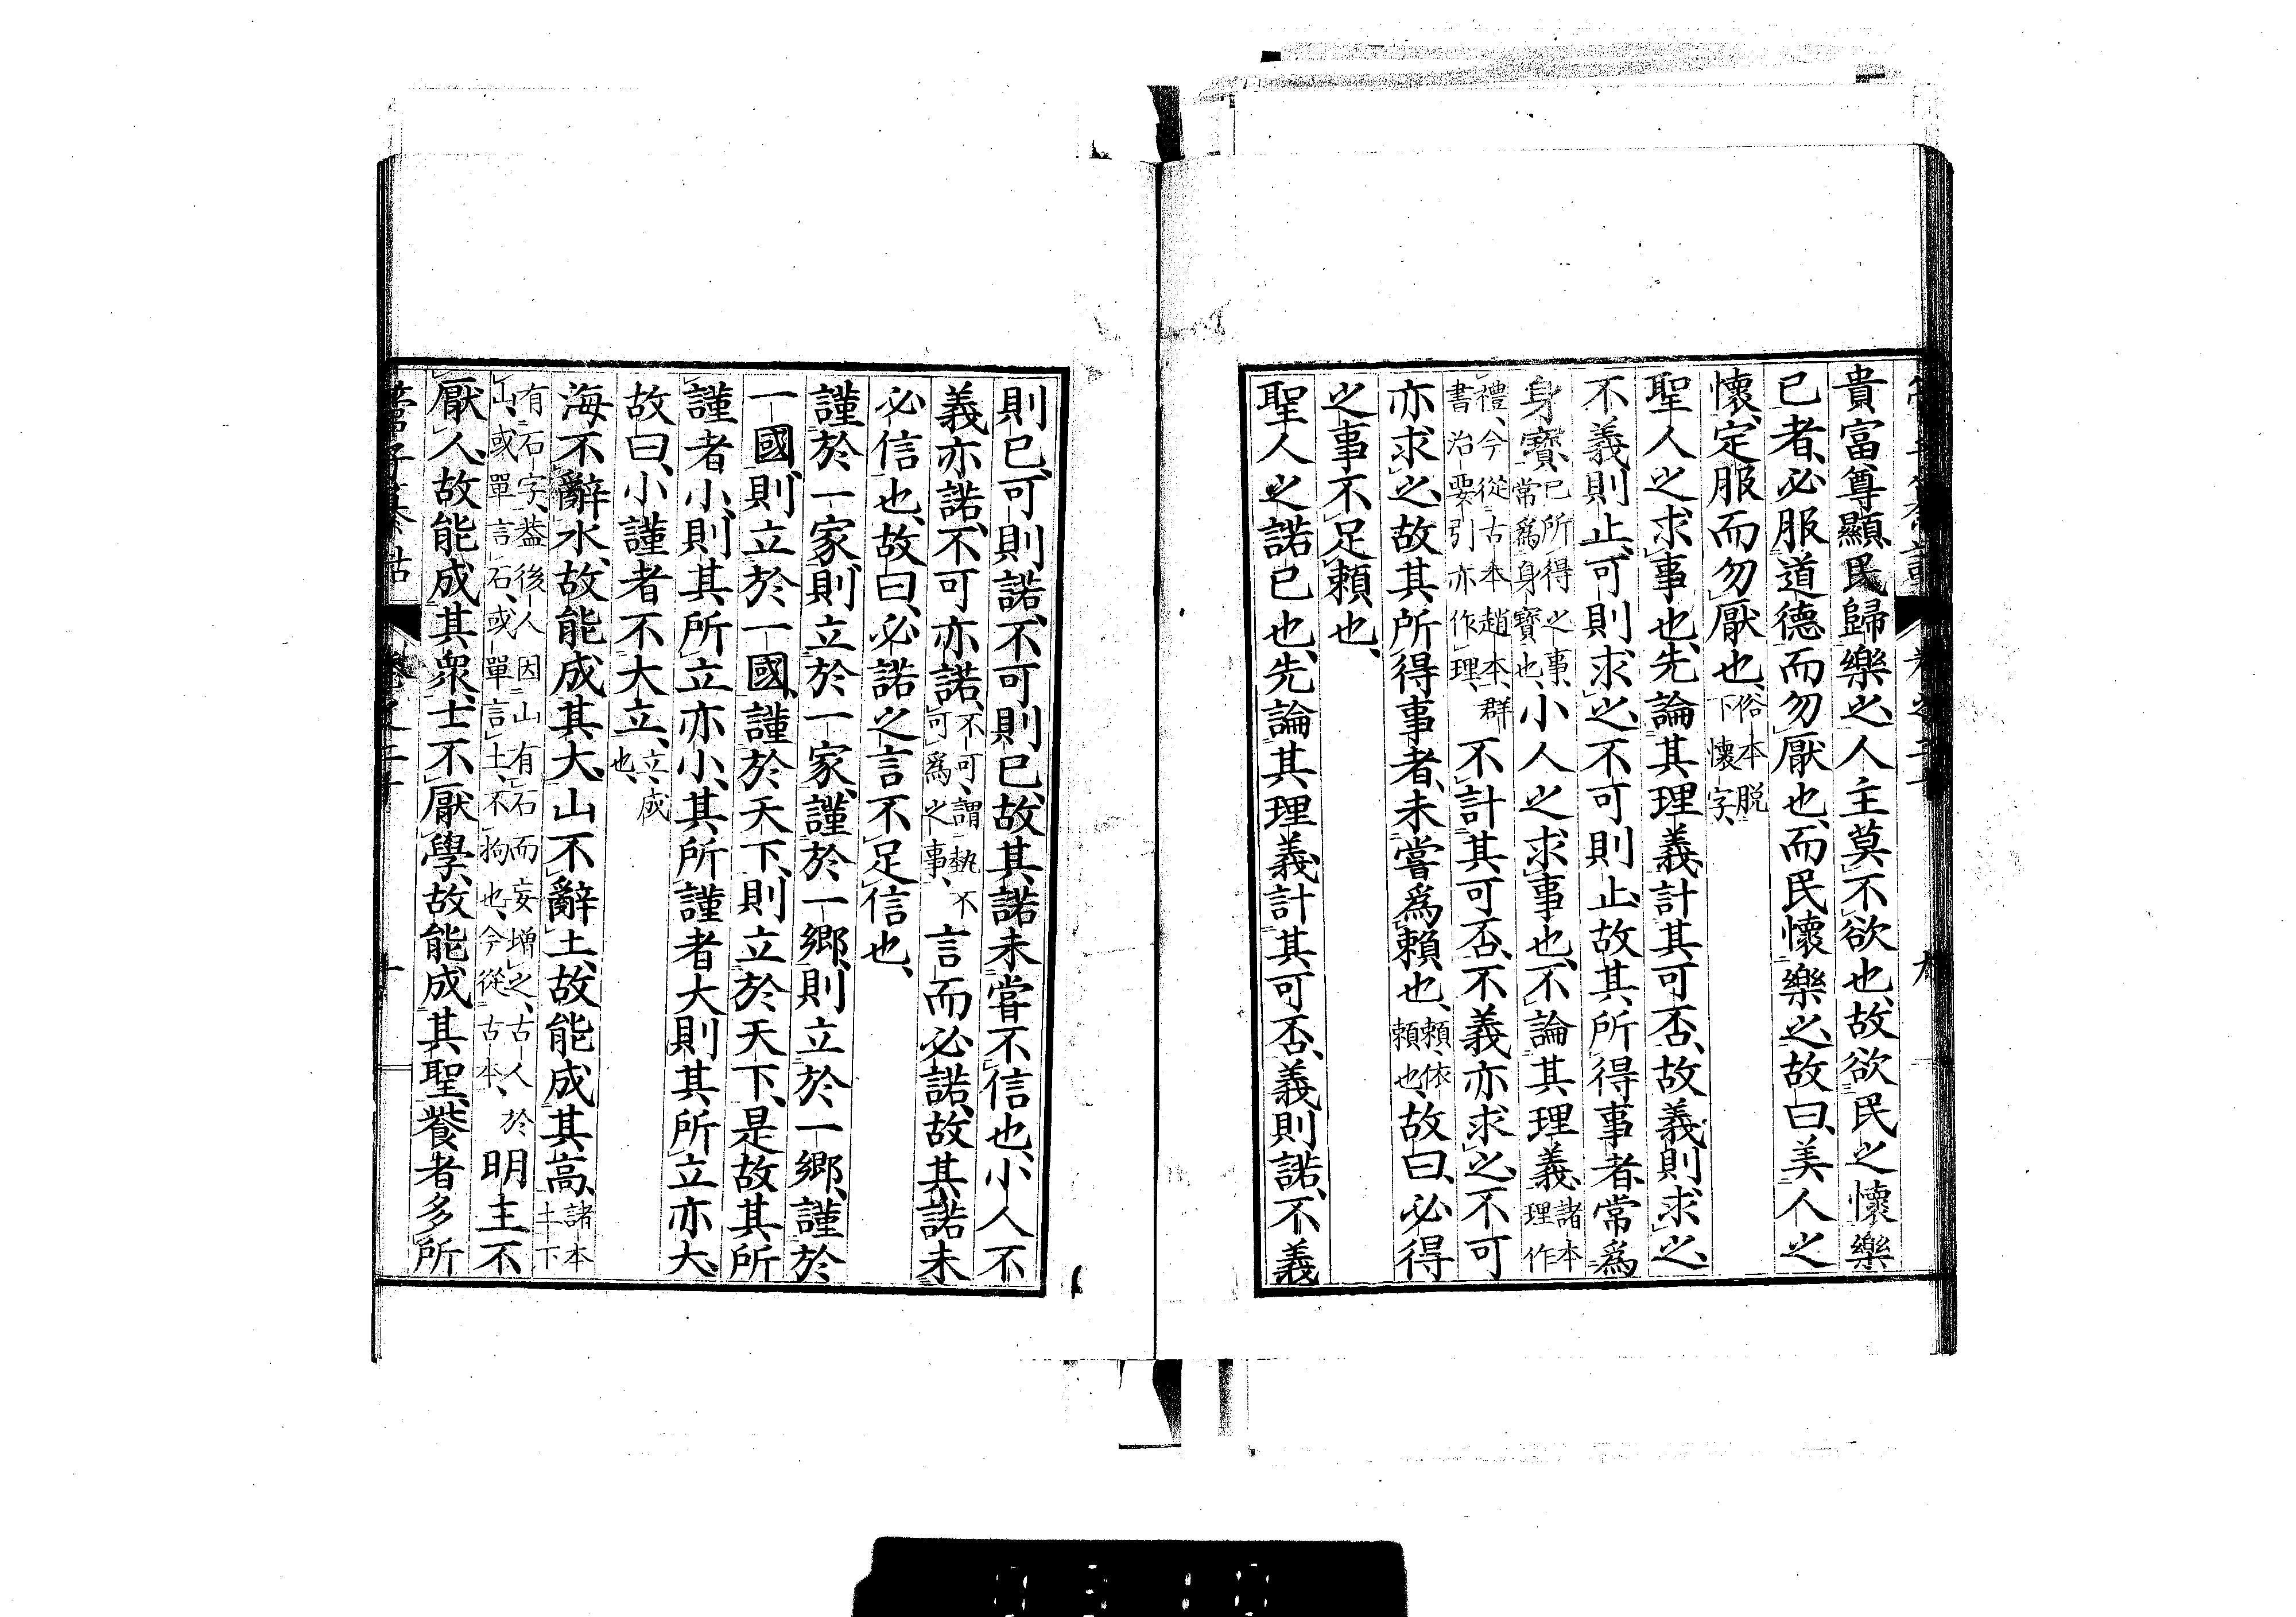 貴富尊顯、民歸樂之、人主莫不欲也、故欲民之懷樂
已者、必服道德而勿厭也、而民懷樂之、故曰、美人之
懷、定服而勿厭也、俗本脱下懷字、
聖人之求事也、先論其理義、計其可否、故義則求之、
不義則止、可則求之、不可則止、故其所得事者、常爲
身寶、已所得之事、常爲身寶也、小人之求事也、不論其理義、諸本理作
禮、今從古本趙本、群書治要引亦作理、不計其可否、不義亦求之、不可
亦求之、故其所得事者、未嘗爲賴也、賴、依賴也、故曰、必得
之事不足賴也、
聖人之諾已也、先論其理義、計其可否、義則諾、不義
則已、可則諾、不可則已、故其諾未嘗不信也、小人不
義亦諾、不可亦諾、不可、謂埶不可爲之事、言而必諾、故其諾未
必信也、故曰、必諾之言不足信也、
謹於一家、則立於一家、謹於一鄉、則立於一鄉、謹於
一國、則立於一國、謹於天下、則立於天下、是故其所
謹者小、則其所立亦小、其所謹者大、則其所立亦大、
故曰、小謹者不大立、立、成也、
海不辭水、故能成其大、山不辭土、故能成其高、諸本土下
有石字、蓋後人因山有石而妄增之、古人於山、或單言石、或單言土、不拘也、今從古本、明主不
厭人、故能成其衆、士不厭學、故能成其聖、養者多所
管子纂詁 卷之二十